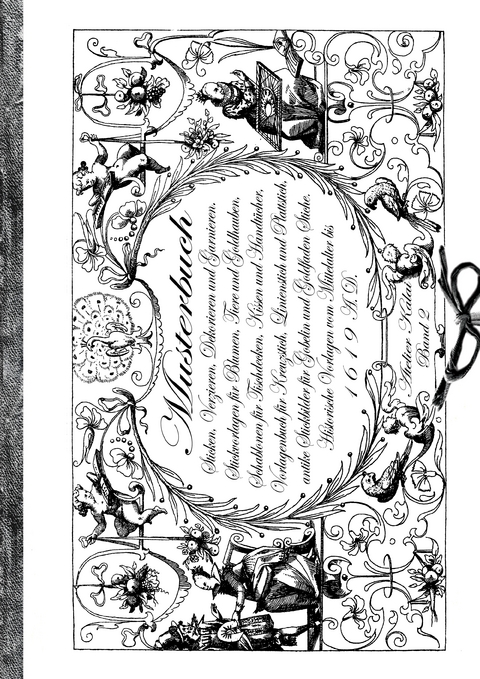 Musterbuch
Sticken, Verzieren, Dekorieren und Garnieren.
Stickvorlagen für Blumen, Tiere und Goldhauben,
Schablonen für Tischdecken, Kissen und Handtücher,
Vorlagenbuch für Kreuzstich, Linienstich und Plattstich,
antike Stickbilder für Gobelin und Goldfaden
Historische Vorlagen vom Mittelalter bis
1619 A.D.
Band 2